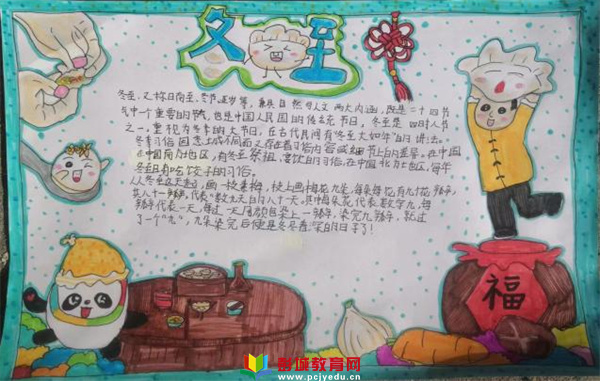 冬至
冬至,又称日南至、冬节、亚岁等,兼具自然与人文两大内涵,既是二十四节
气中一个重要的节气,也是中国人民间的传统节日,冬至是四时八节
之一,重视为冬季的大节日,在古代民间有冬至大如年"的讲法。
冬季习俗因恋上或不同而又存在着习俗内容或细节上的差异。在中国
在中国南方地区,有冬至祭祖、宴饮的习俗。在中国北方地区,每年
冬至有吃饺子的习俗。
从冬至这天起,画一枝素梅,枝上画梅花九朵,每朵梅花有九个花瓣,
共八十一瓣,代表"数九天的八十一天。其中每朵花代表数字九,每
瓣代表一天,每过一天用颜色染上一瓣,染完九瓣,就过
了一个"九",九朵染完后便是冬尽春深的日子了!
福
彭城教育网
www.pcjyedu.cn